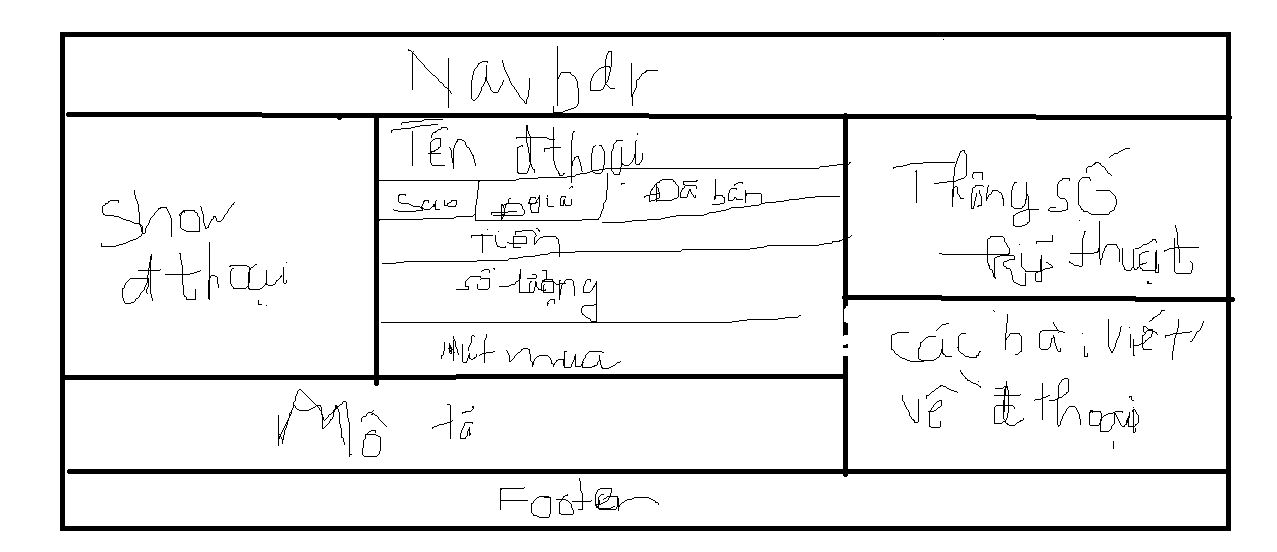 Navbar
Show
đthoại
Tên đthoại
Sao
Đgiá
Đã bán
Tiền
số lượng
Nút mua
Thông số
Kỹ thuật
các bài viết
về đthoại
Mô tả
Footer